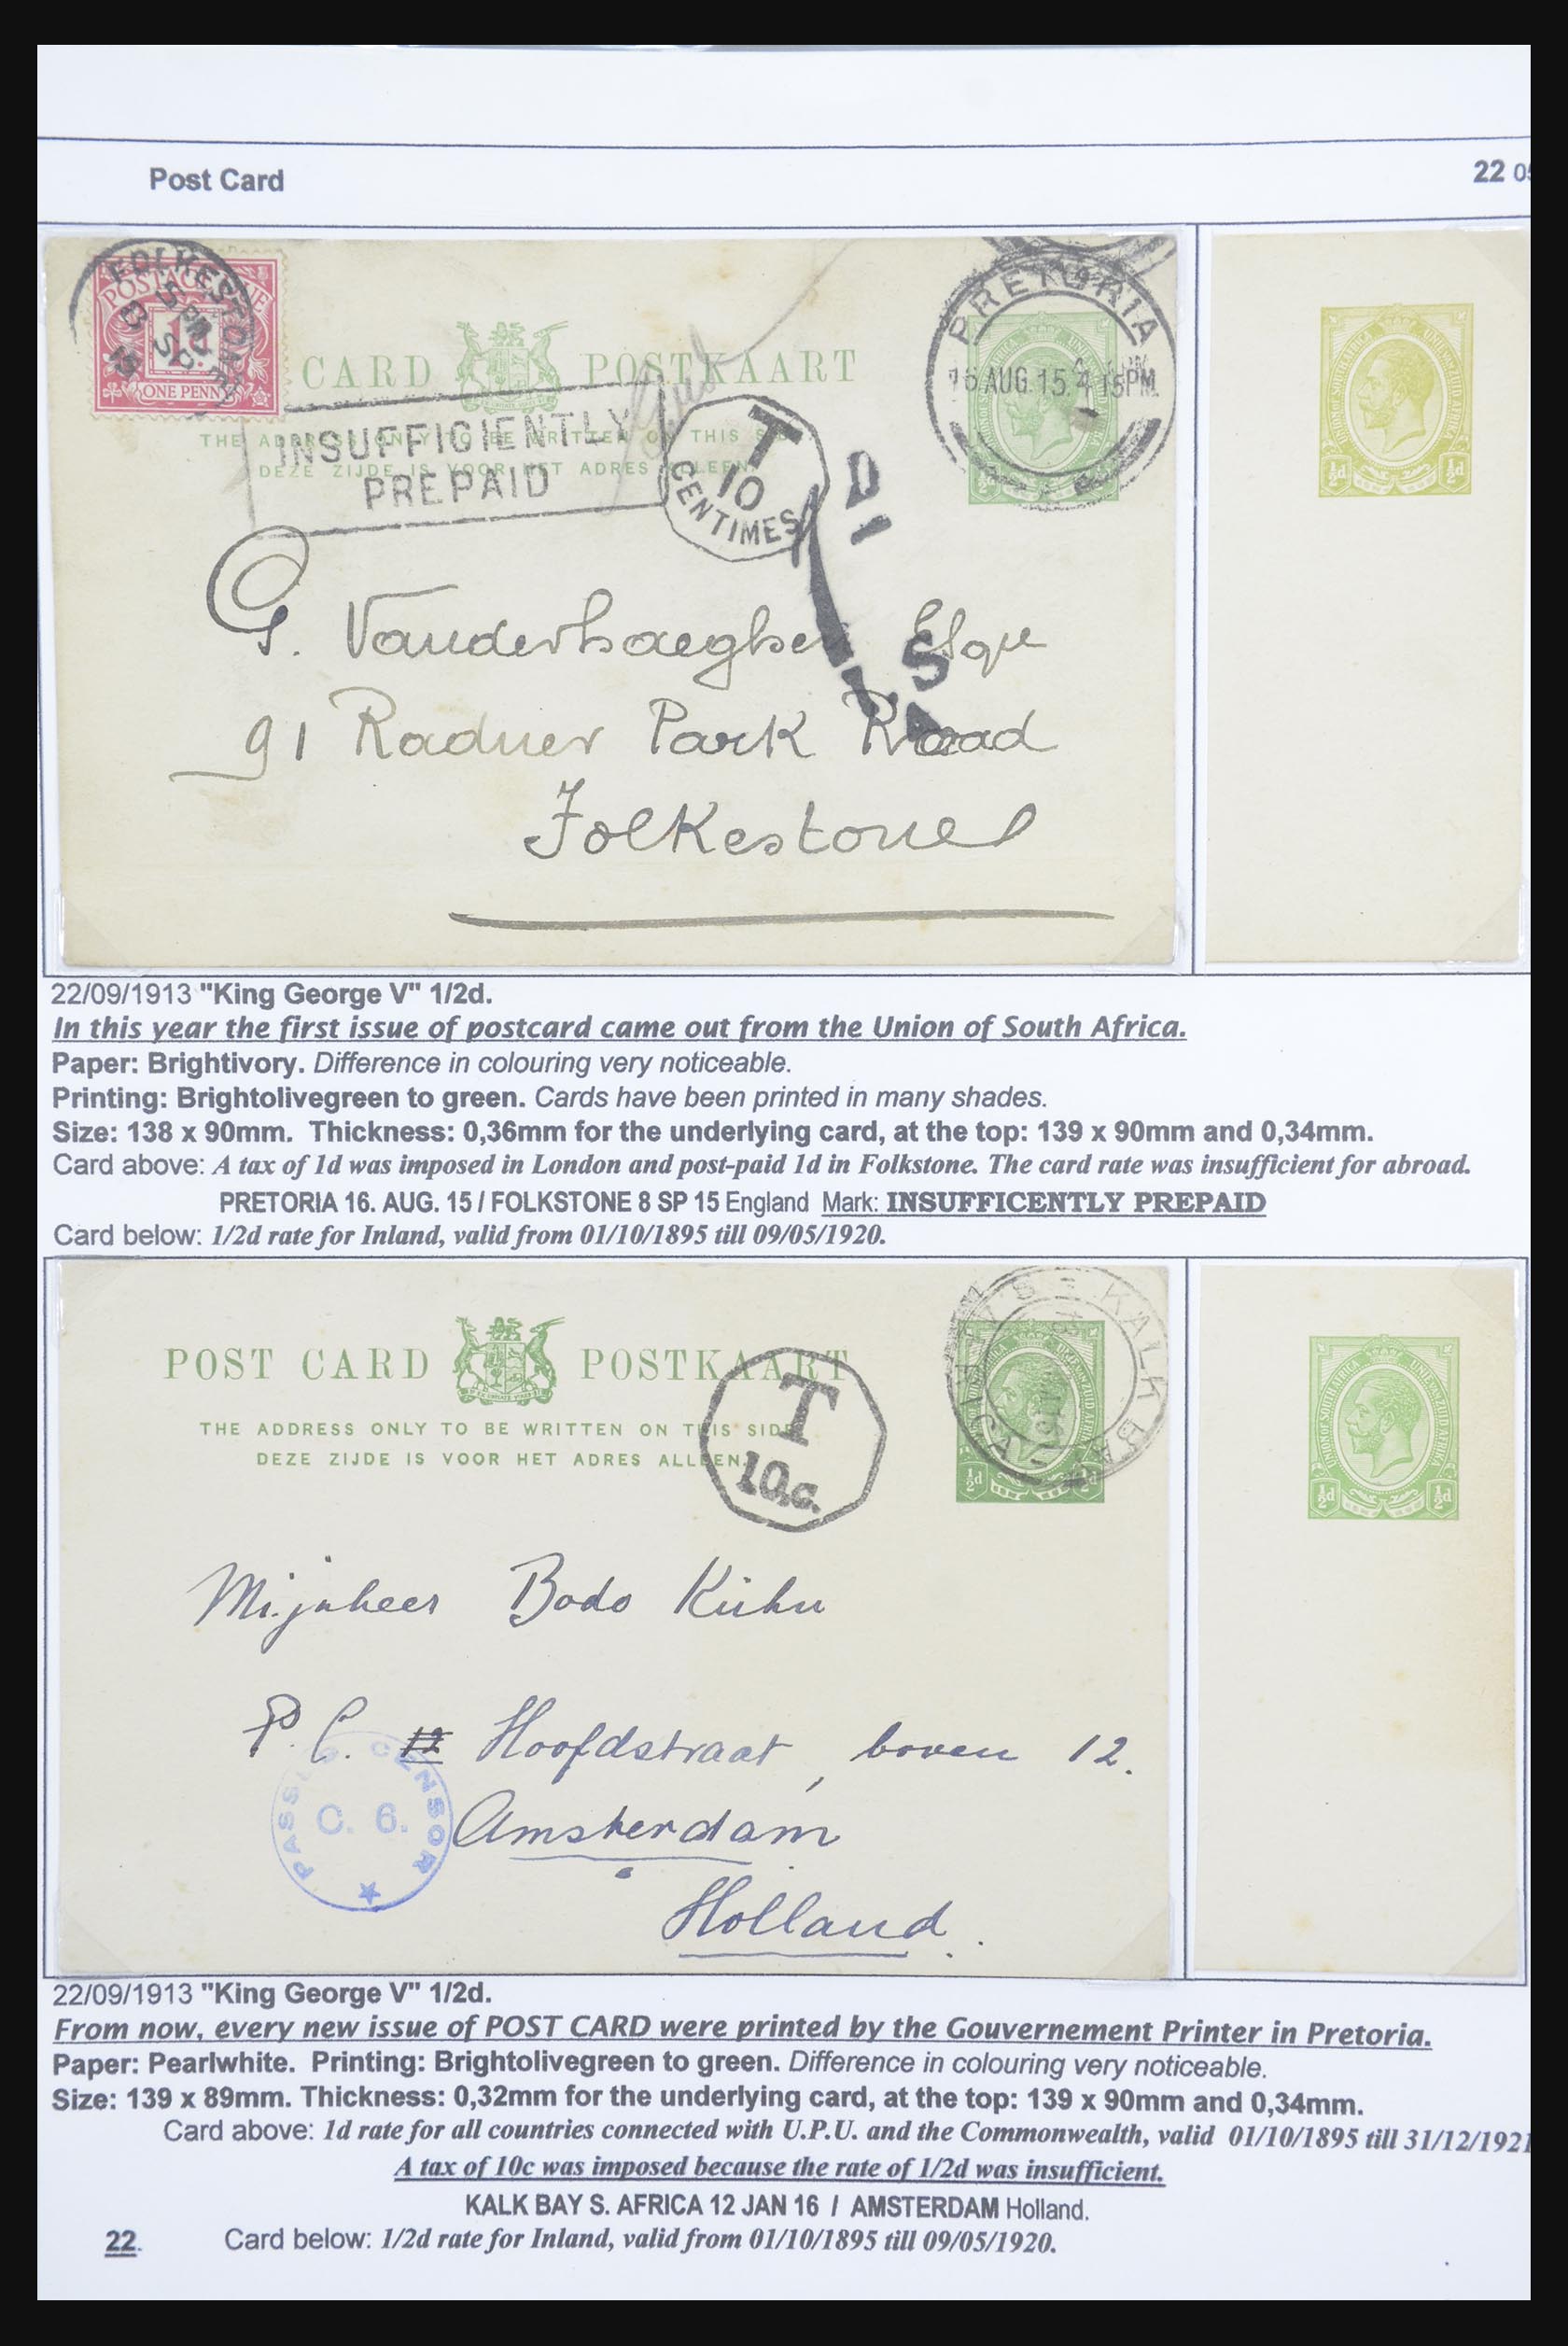 Post Card
22 05
FOLKESTONE
5 PM
SP
15
POSTAGE DUE
1d
ONE PENNY
CARD POSTKAART
THE ADDRESS ONLY TO BE WRITTEN ON THIS SIDE
DEZE ZIJDE IS VOOR HET ADRES ALLEEN.
INSUFFICIENTLY
PREPAID
T
10
CENTIMES
PRETORIA
16 AUG. 15. 4 15PM.
½d
G. Vanderhaeghen Esqre
91 Radner Park Road
Folkestone
UNION OF SOUTH AFRICA UNIE VAN ZUID AFRIKA
½d ½d
22/09/1913 "King George V" 1/2d.
In this year the first issue of postcard came out from the Union of South Africa.
Paper: Brightivory. Difference in colouring very noticeable.
Printing: Brightolivegreen to green. Cards have been printed in many shades.
Size: 138 x 90mm. Thickness: 0,36mm for the underlying card, at the top: 139 x 90mm and 0,34mm.
Card above: A tax of 1d was imposed in London and post-paid 1d in Folkstone. The card rate was insufficient for abroad.
PRETORIA 16. AUG. 15 / FOLKSTONE 8 SP 15 England Mark: INSUFFICENTLY PREPAID
Card below: 1/2d rate for Inland, valid from 01/10/1895 till 09/05/1920.
POST CARD POSTKAART
THE ADDRESS ONLY TO BE WRITTEN ON THIS SIDE
DEZE ZIJDE IS VOOR HET ADRES ALLEEN.
T
10.c.
KALK BAY S. AFRICA
½d ½d
Mijnheer Bodo Kühn
P.C. 12 Hoofdstraat, boven 12.
Amsterdam
Holland.
PASSED CENSOR
C. 6.
UNION OF SOUTH AFRICA UNIE VAN ZUID AFRIKA
½d ½d
22/09/1913 "King George V" 1/2d.
From now, every new issue of POST CARD were printed by the Gouvernement Printer in Pretoria.
Paper: Pearlwhite. Printing: Brightolivegreen to green. Difference in colouring very noticeable.
Size: 139 x 89mm. Thickness: 0,32mm for the underlying card, at the top: 139 x 90mm and 0,34mm.
Card above: 1d rate for all countries connected with U.P.U. and the Commonwealth, valid 01/10/1895 till 31/12/1921
A tax of 10c was imposed because the rate of 1/2d was insufficient.
KALK BAY S. AFRICA 12 JAN 16 / AMSTERDAM Holland.
22. Card below: 1/2d rate for Inland, valid from 01/10/1895 till 09/05/1920.